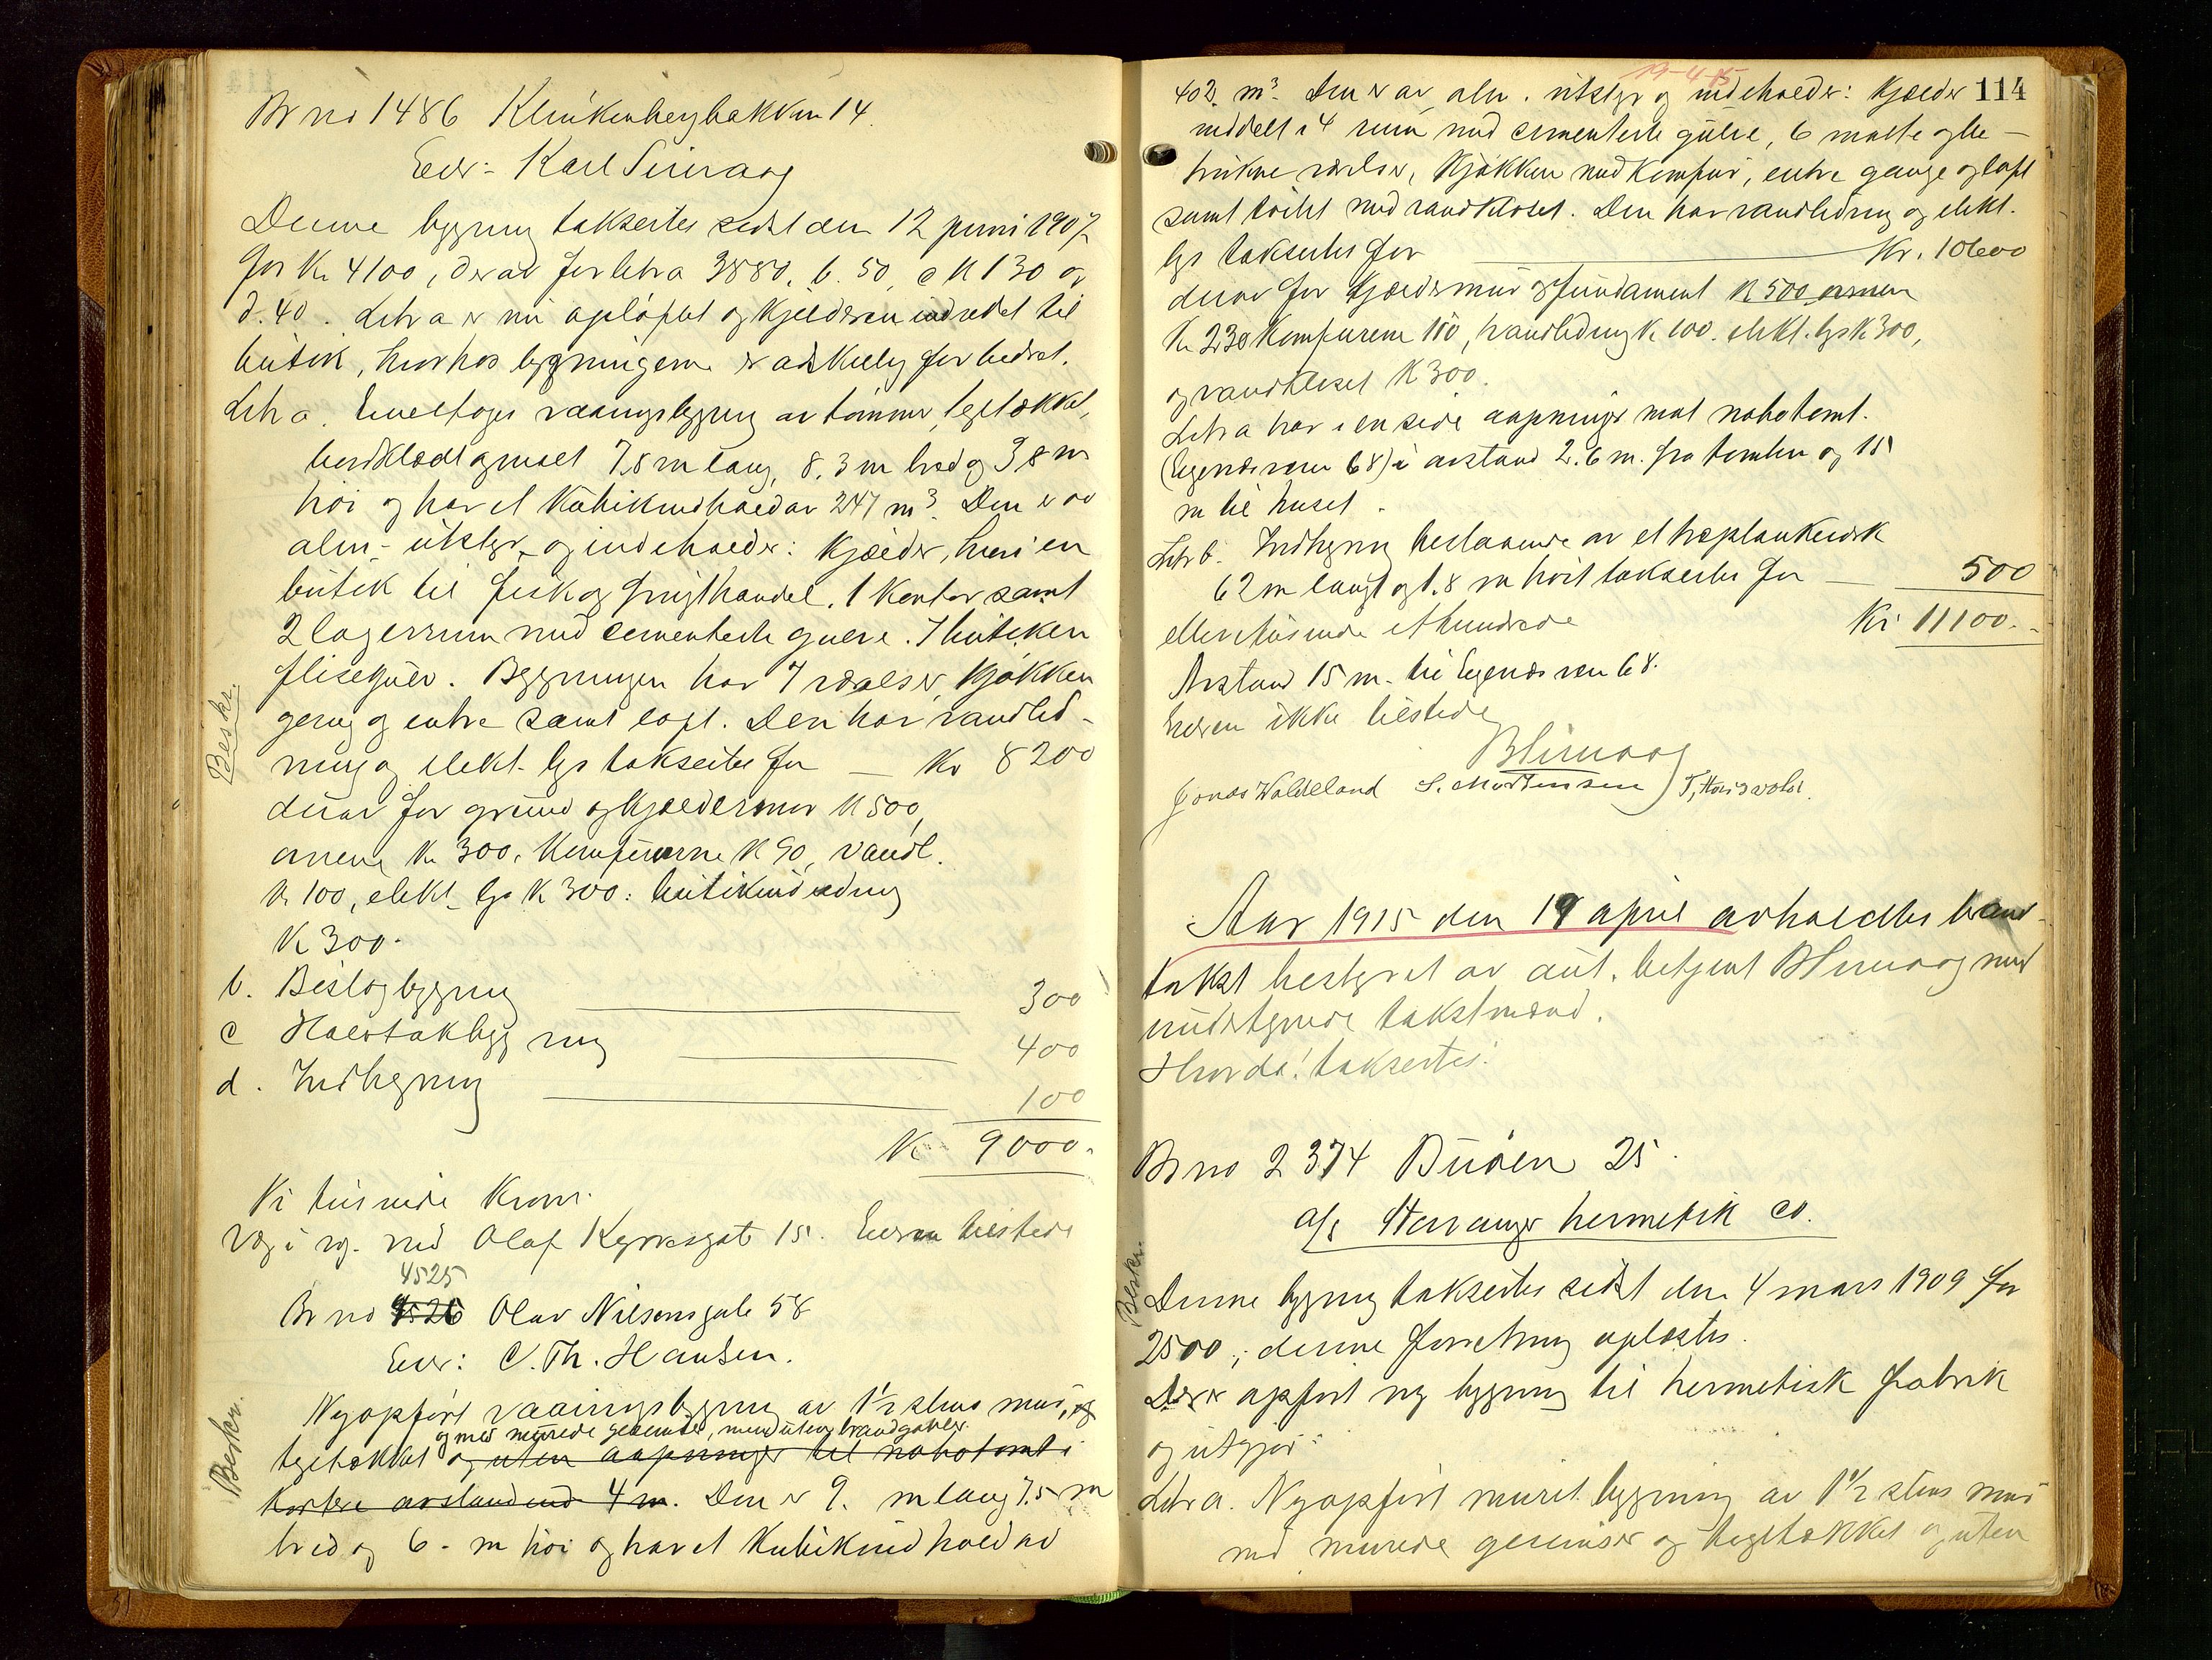 Br no 1486 Klinkenbergbakken 14.
Eier: Karl
Denne bygning takseertes sidst den 12 juni 1907
for Kr 4100, derav for letra 3880, b. 50, c K 130 og
d. 40. Letr a er nu opløftet og kjelderen indredet til
butik, hvorhos bygningerne er adskillig forbedret.
Litr a. Enetages vaaningsbygning av tømmer, tegltækket,
bordklædt og malt 7,8 m lang, 8,3 m bred og 3,8 m
høi og har et Kubikindhold av 247 m³. Den er av
alm. utstyr og indeholder: Kjælder, hvori en
butik til fisk og frugthandel, 1 Kontor samt
2 lagerrum med cementerte gulve. I butiken
flisegulv. Bygningen har 7 værelser, Kjøkken
gang og entre samt loft. Den har vandled-
ning og elekt. lys takseertes for — Kr 8200
derav for grund og Kjeldermur K 500,
ovnene Kr 300, Komfurerne K 90, vandl.
Kr 100, elekt. lys K 300: butikindredning
K 300.
Beskr.
b. Beslagbygning 300
c Halvtakbygning 400
d. Indhegning 100
K 9000.
Ni tusinde Kroner.
Væg i væg med Olaf Kyrresgate 15. Eieren tilstede
4525
Br no 4526 Olav Nielsensgate 58
Eier: C. Th. Hansen.
Beskr.
Nyopført vaaningsbygning av 1½ stens mur, og
og med murede gesimser, men uten brandgavler.
tegltækket og uten aapninger til nabotomt i
kortere avstand end 4 m. Den er 9. m lang 7,5 m
bred og 6 - m høi og har et Kubikindhold av
19-4-15
114
402. m³. Den er av alm. utstyr og indeholder: Kjælder
inddelt i 4 rum med cementerte gulve, 6 malte og be-
trukne værelser, Kjøkken med Komfur, entre gange og loft
samt toilet med vandkloset. Den har vandledning og elekt.
lys takseertes for Kr. 10600
derav for Kjeldermur og fundament K 500 ovnene
Kr 230 Komfurene 150, vandledning K 100. elekt. lys K 300,
og vandkloset K 300.
Letr a har i en side aapninger mot nabotomt.
(Egenæsveien 68) i avstand 2.6 m. fra tomten og 15
m til huset.
Letr b. Indhegning bestaaende av et træplankeværk
62 m langt og 1.8 m høit takseertes for — 500
elleve tusinde et hundrede Kr 11100.-
Avstand 15 m. til Egenæsveien 68.
Eieren ikke tilstede
Jonas Waldeland S. Mortensen
Aar 1915 den 19 april avholdtes brand-
takst bestyret av aut. betjent med
undertegnede takstmænd.
Hvorda! takseertes!
Br no 2374 Buøen 25.
a/s Stavanger hermetik co.
Beskr.
Denne bygning takseertes sidst den 4 mars 1909 for
2500; denne forretning opløstes.
Der er opført ny bygning til hermetisk fabrik
og utgjør:
Letr a. Nyopført muret bygning av 1½ stens mur
med murede gesimser og tegltækket og uten